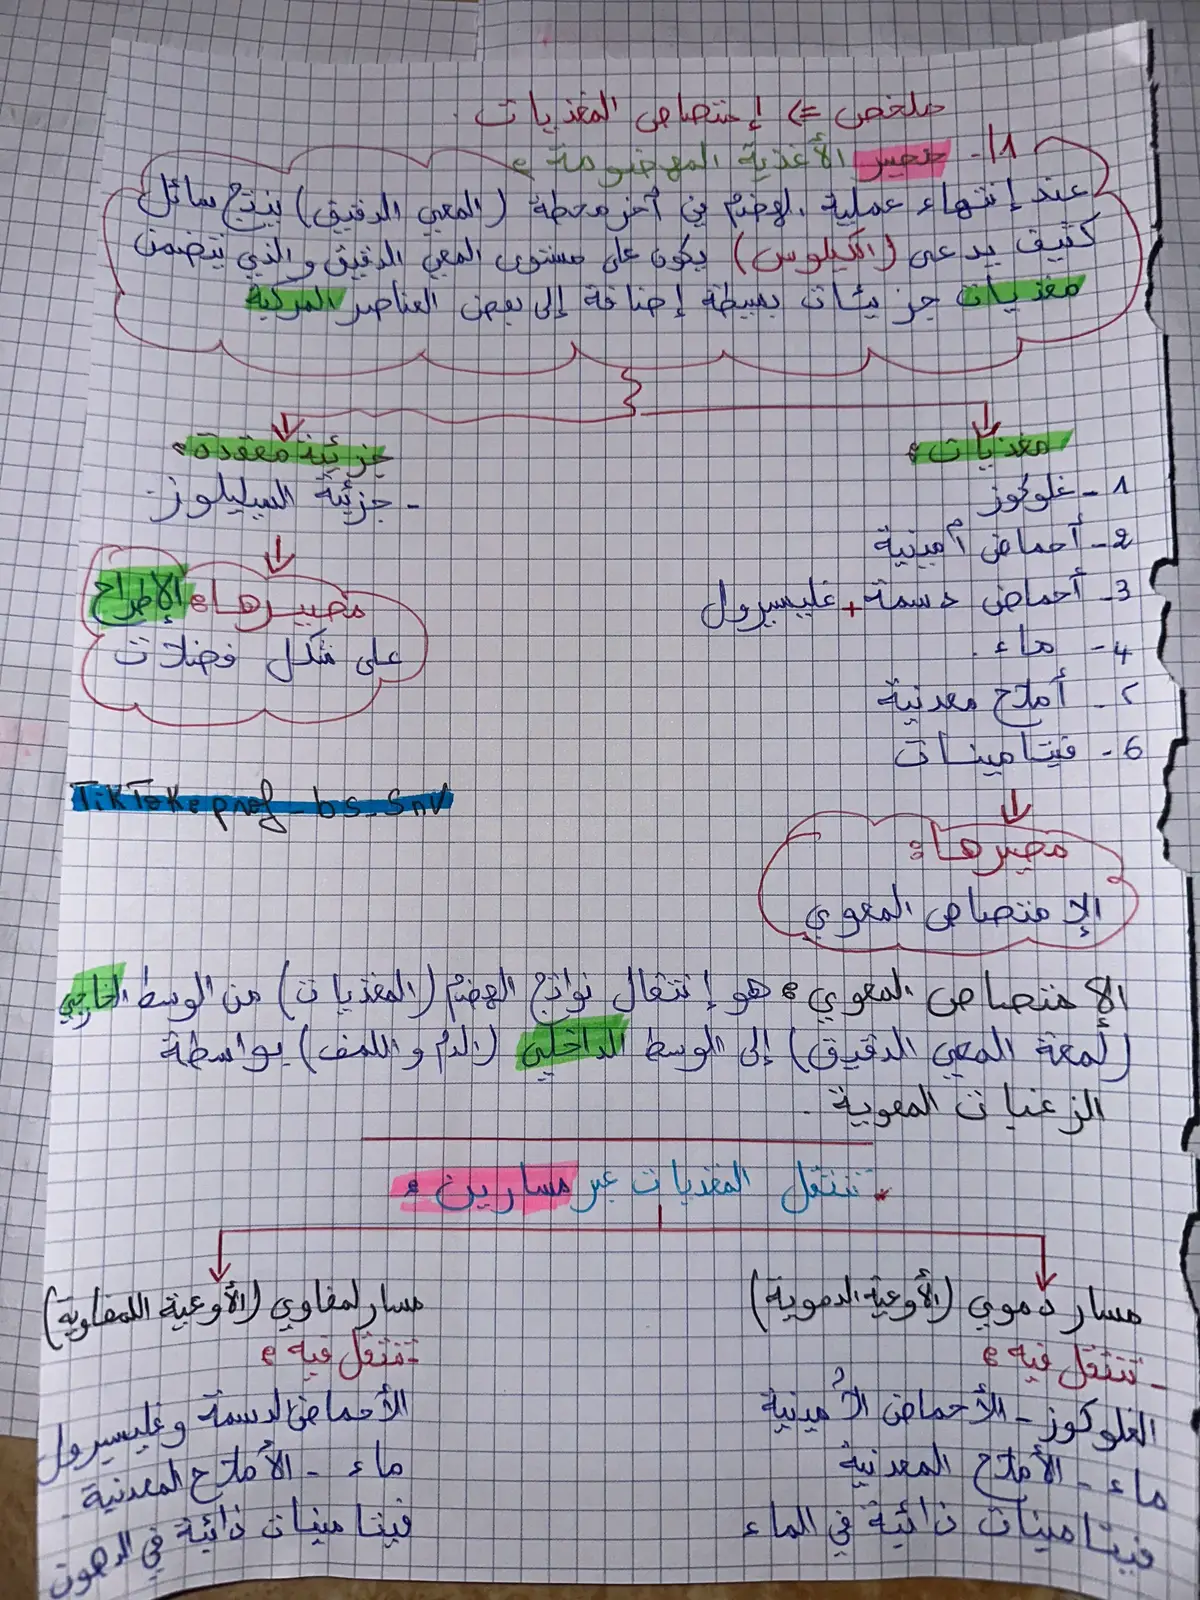 ملخص => إمتصاص المغذيات.
1/- مصير الأغذية المهضومة:
عند إنتهاء عملية الهضم في آخر محطة (المعي الدقيق) ينتج سائل
كثيف يدعى (الكيلوس) يكون على مستوى المعي الدقيق والذي يتضمن
مغذيات جزيئات بسيطة إضافة إلى بعض العناصر المركبة
مغذيات:
1- غلوكوز
2- أحماض أمينية
3- أحماض دسمة + غليسيرول
4- ماء.
5- أملاح معدنية
6- فيتامينات
مصيرها:
الإمتصاص المعوي
جزيئة معقدة:
- جزئية السيليلوز.
مصيرها: الإطراح
على شكل فضلات
TikTok: prof_bs_snv
الامتصاص المعوي: هو إنتقال نواتج الهضم (المغذيات) من الوسط الخارجي
(لمعة المعي الدقيق) إلى الوسط الداخلي (الدم واللمف) بواسطة
الزغبات المعوية.
تنتقل المغذيات عبر مسارين:
مسار دموي (الأوعية الدموية)
- تنتقل فيه:
الغلوكوز - الأحماض الأمينية
ماء - الأملاح المعدنية
فيتامينات ذائبة في الماء
مسار لمفاوي (الأوعية اللمفاوية)
- تنتقل فيه:
الأحماض الدسمة وغليسيرول
ماء - الأملاح المعدنية.
فيتامينات ذائبة في الدهون